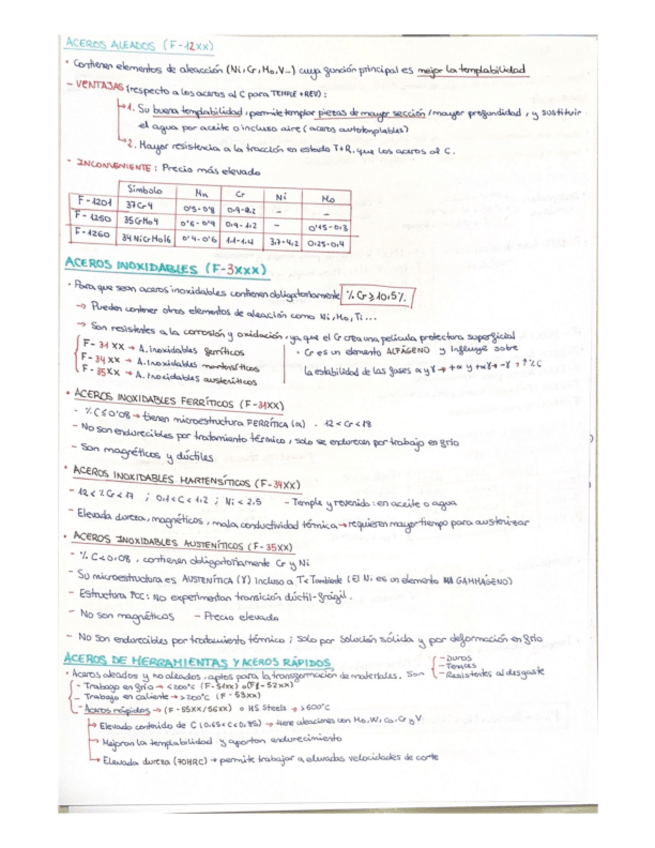 ACEROS ALEADOS (F-12XX)
· Contienen elementos de aleacción (Ni, Cr, Mo, V...) cuya función principal es mejor la templabilidad
- VENTAJAS (respecto a los aceros al C para TEMPLE + REV):
1. Su buena templabilidad, permite templar piezas de mayor sección / mayor profundidad, y sustituir
el agua por aceite o incluso aire (aceros autotemplables)
2. Mayor resistencia a la tracción en estado T+R, que los aceros al C.
- INCONVENIENTE: Precio más elevado
Símbolo Mn Cr Ni Mo
F-1201 37Cr4 0'5-0'8 0.9-1.2 - -
F-1250 35CrMo4 0'6-0'9 0.9-1.2 - 0'15-0.3
F-1260 34NiCrMo16 0'4-0'6 1.1-1.4 3.7-4.2 0.25-0.4
ACEROS INOXIDABLES (F-3XXX)
· Para que sean aceros inoxidables contienen obligatoriamente % Cr ≥ 10,5%
→ Pueden contener otros elementos de aleación como Ni, Mo, Ti...
→ Son resistentes a la corrosión y oxidación, ya que el Cr crea una película protectora superficial
F-31XX → A. inoxidables ferríticos
F-34XX → A. Inoxidables martensíticos
F-35XX → A. Inoxidables austeníticos
· Cr es un elemento ALFÁGENO y influye sobre
la estabilidad de las fases α y γ → +α y
· ACEROS INOXIDABLES FERRÍTICOS (F-31XX)
- % C ≤ 0'08 → tienen microestructura FERRÍTICA (α) . 12 < Cr < 18
- No son endurecibles por tratamiento térmico, solo se endurecen por trabajo en frío
- Son magnéticos y dúctiles
· ACEROS INOXIDABLES MARTENSÍTICOS (F-34XX)
- 12 < % Cr < 17 ; 0.1 < C < 1.2 ; Ni < 2.5 - Temple y revenido: en aceite o agua
- Elevada dureza, magnéticos, mala conductividad térmica → requieren mayor tiempo para austenizar
· ACEROS INOXIDABLES AUSTENÍTICOS (F-35XX)
- % C < 0.08, contienen obligatoriamente Cr y Ni
- Su microestructura es AUSTENÍTICA (γ) incluso a T < Tambiente (El Ni es un elemento GAMMÁGENO)
- Estructura FCC: NO experimentan transición dúctil-frágil.
- No son magnéticos - Precio elevado
- No son endurecibles por tratamiento térmico; solo por solución sólida y por deformación en frío
ACEROS DE HERRAMIENTAS Y ACEROS RÁPIDOS
· Aceros aleados y no aleados, aptos para la transformación de materiales. Son
- Duros
- Tenaces
- Resistentes al desgaste
- Trabajo en frío → < 200ºC (F-51XX) o (F-52XX)
- Trabajo en caliente → > 200ºC (F-53XX)
- Aceros rápidos → (F-55XX/56XX) o HS Steels → > 600ºC
→ Elevado contenido de C (0.65 < C < 0.85) → tiene aleaciones con Mo, W, Co, Cr y V
→ Mejoran la templabilidad y aportan endurecimiento
→ Elevada dureza (70HRC) → permite trabajar a elevadas velocidades de corte